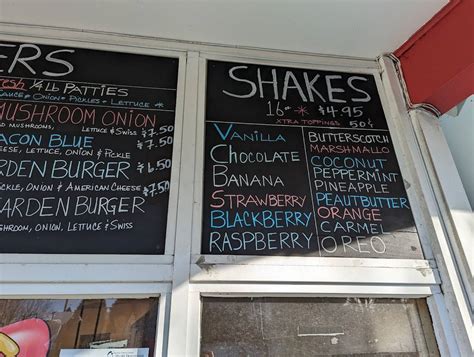 ERS
Fresh ¼ LB PATTIES
SAUCE • ONION • PICKLES • LETTUCE *
MUSHROOM ONION
MUSHROOMS, LETTUCE & SWISS $7.50
CON BLUE $7.50
CHEESE, LETTUCE, ONION & PICKLE
RDEN BURGER $6.50
PICKLE, ONION & AMERICAN CHEESE $7.50
ARDEN BURGER
HROOM, ONION, LETTUCE & SWISS
SHAKES
16 oz * $4.95
XTRA TOPPINGS 50¢
VANILLA
CHOCOLATE
BANANA
STRAWBERRY
BLACKBERRY
RASPBERRY
BUTTERSCOTCH
MARSHMALLO
COCONUT
PEPPERMINT
PINEAPPLE
PEAUTBUTTER
ORANGE
CARMEL
OREO